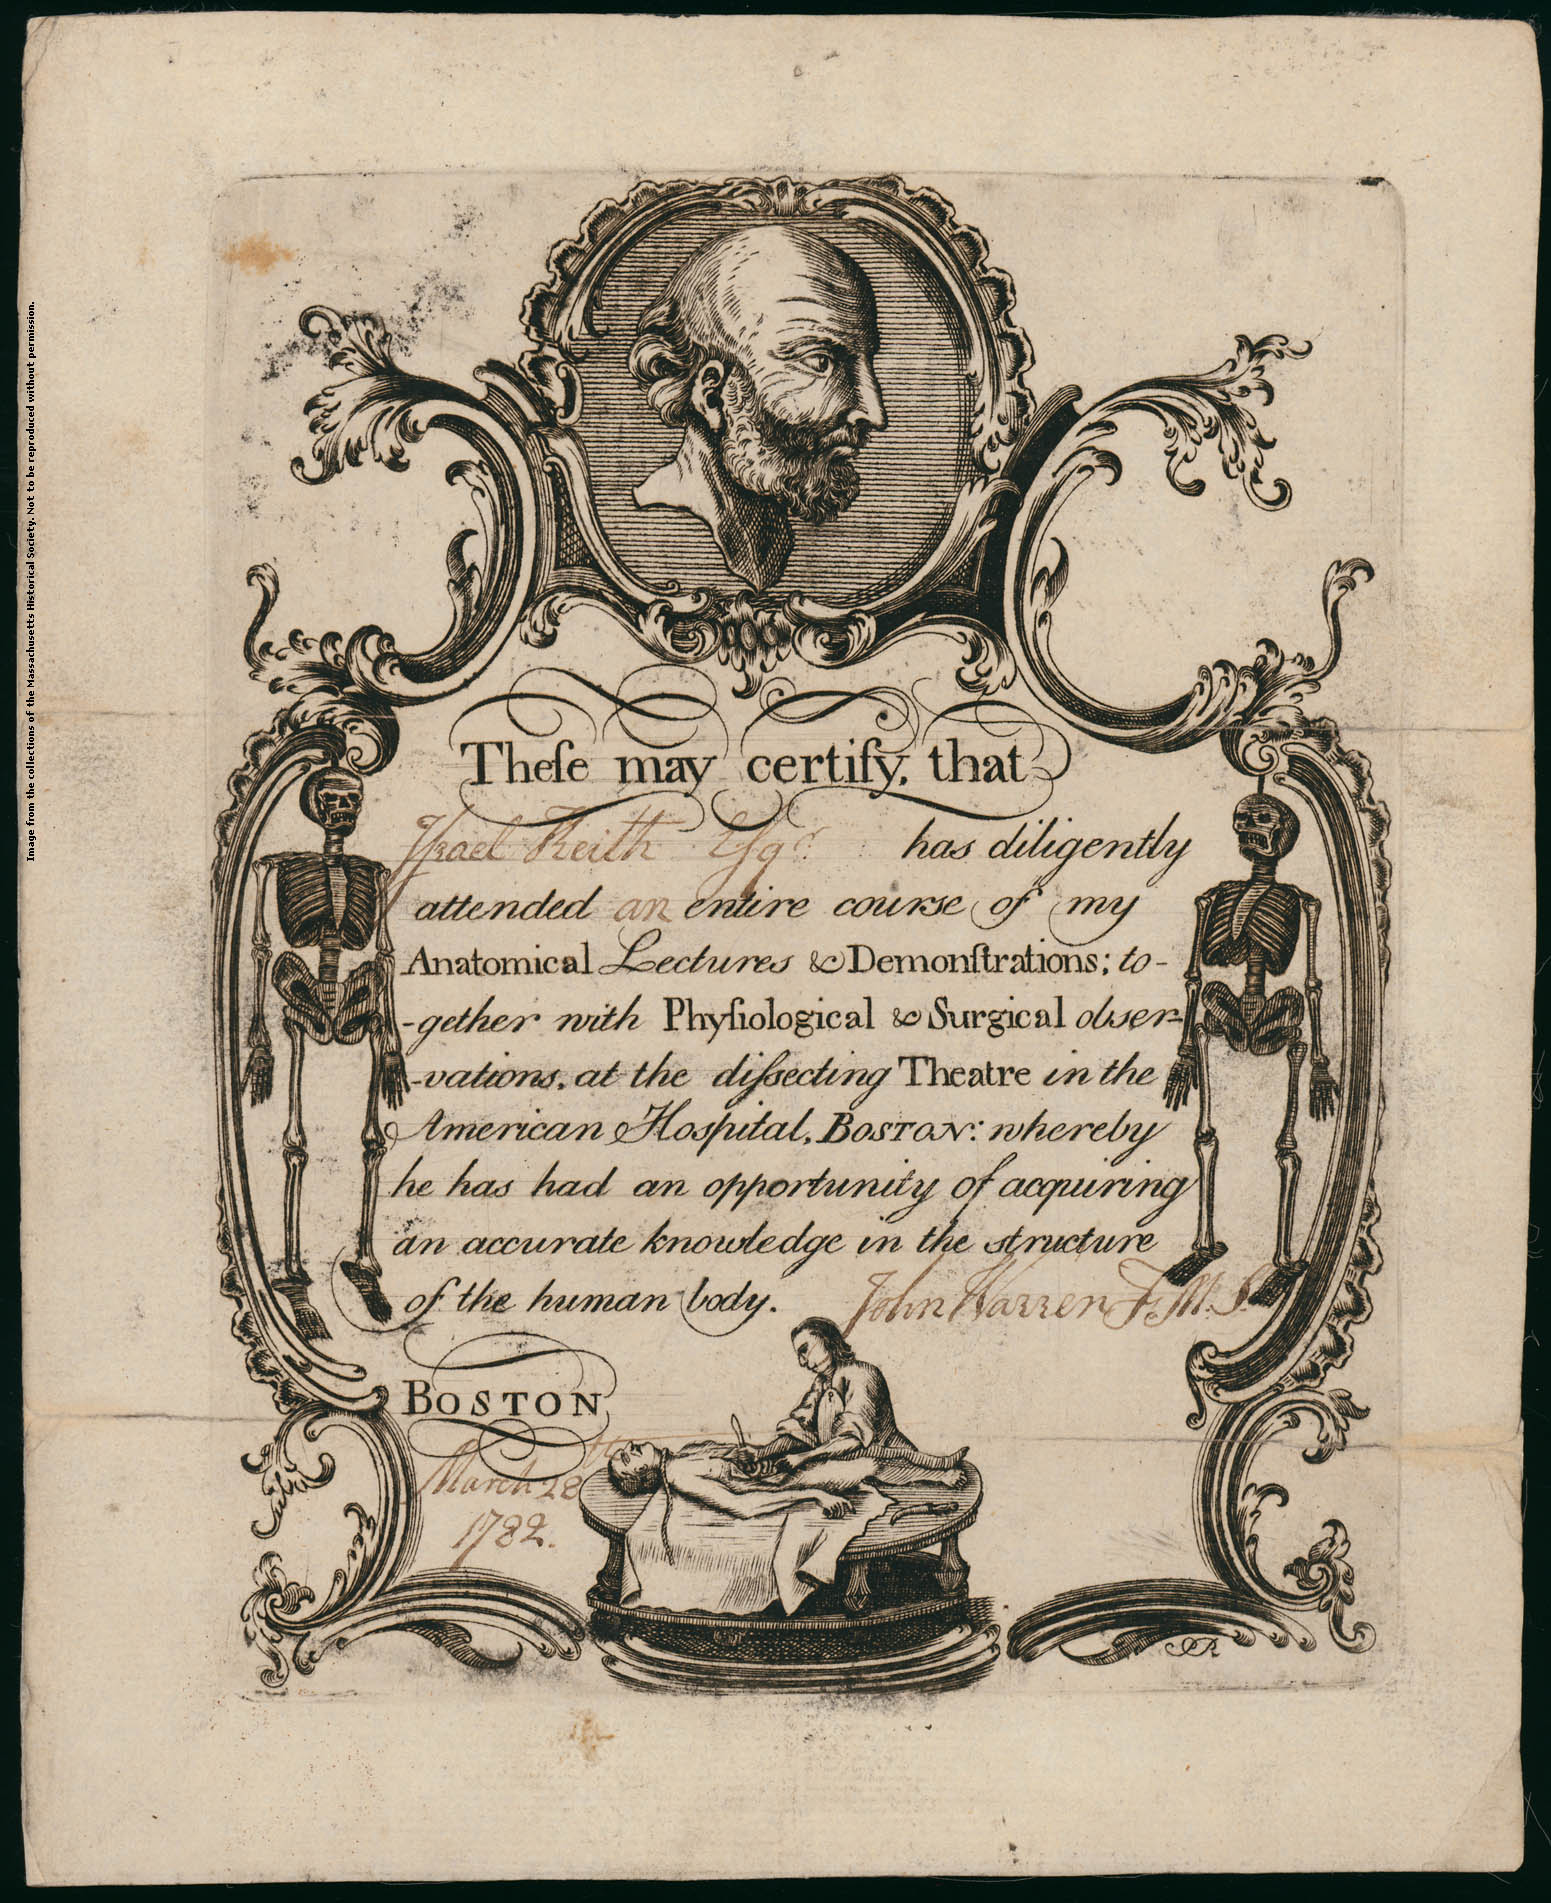 Theſe may certify, that
Iſrael Keith Eſqr has diligently
attended an entire course of my
Anatomical Lectures & Demonſtrations; to-
-gether with Phyſiological & Surgical obser-
-vations, at the diſsecting Theatre in the
American Hospital, BOSTON: whereby
he has had an opportunity of acquiring
an accurate knowledge in the structure
of the human body.
John Warren F.M.S.
BOSTON
March 28
1782.
PR
Image from the collections of the Massachusetts Historical Society. Not to be reproduced without permission.